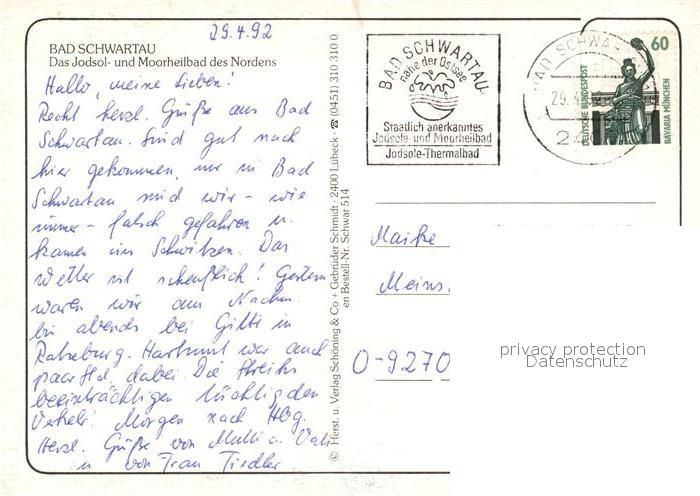 29.4.92
BAD SCHWARTAU
Das Jodsol- und Moorheilbad des Nordens
Hallo, meine Lieben!
Recht herzl. Grüße aus Bad
Schwartau. Sind gut nach
hier gekommen, nur in Bad
Schwartau sind wir - wie
immer - falsch gefahren u.
kamen ins Schwitzen. Das
Wetter ist scheußlich! Gestern
waren wir am Nachm.
bis abends bei Gitti in
Ratzeburg. Hartmut war auch
paar Std. dabei. Die Streiks
beeinträchtigen tüchtig den
Verkehr. Morgen nach Hbg.
Herzl. Grüße von Mutti u. Vati
u. von Frau Tiedler
© Herst. u. Verlag Schöning & Co + Gebrüder Schmidt · 2400 Lübeck · ☎ (0451) 310 310 0
en Bestell-Nr. Schwar 514
BAD SCHWARTAU
nahe der Ostsee
Staatlich anerkanntes
Jodsole- und Moorheilbad
Jodsole-Thermalbad
BAD SCHWA
29.
2
60
DEUTSCHE BUNDESPOST
BAVARIA MÜNCHEN
Maike
Meins.
O-9270
privacy protection
Datenschutz